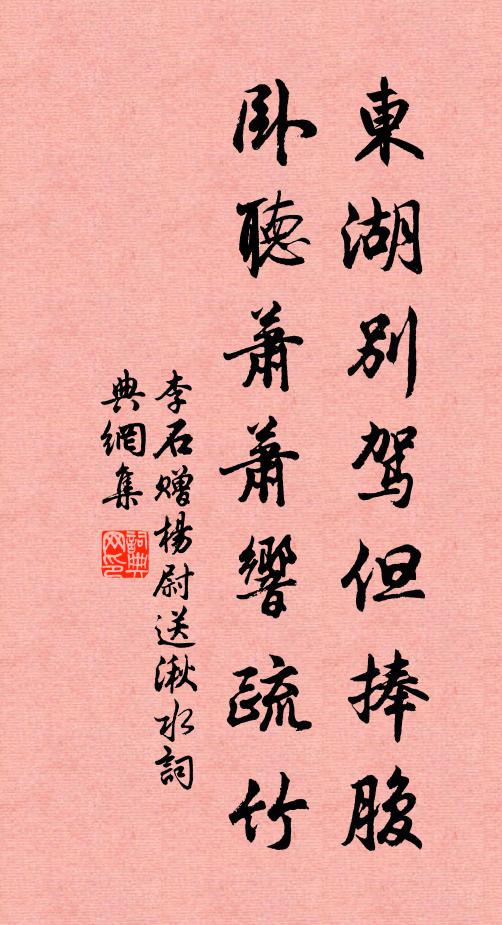 東湖別駕但捧腹
卧聽蕭蕭響疏竹
李石赠楊尉送湫水詞
典網集
詞典网印